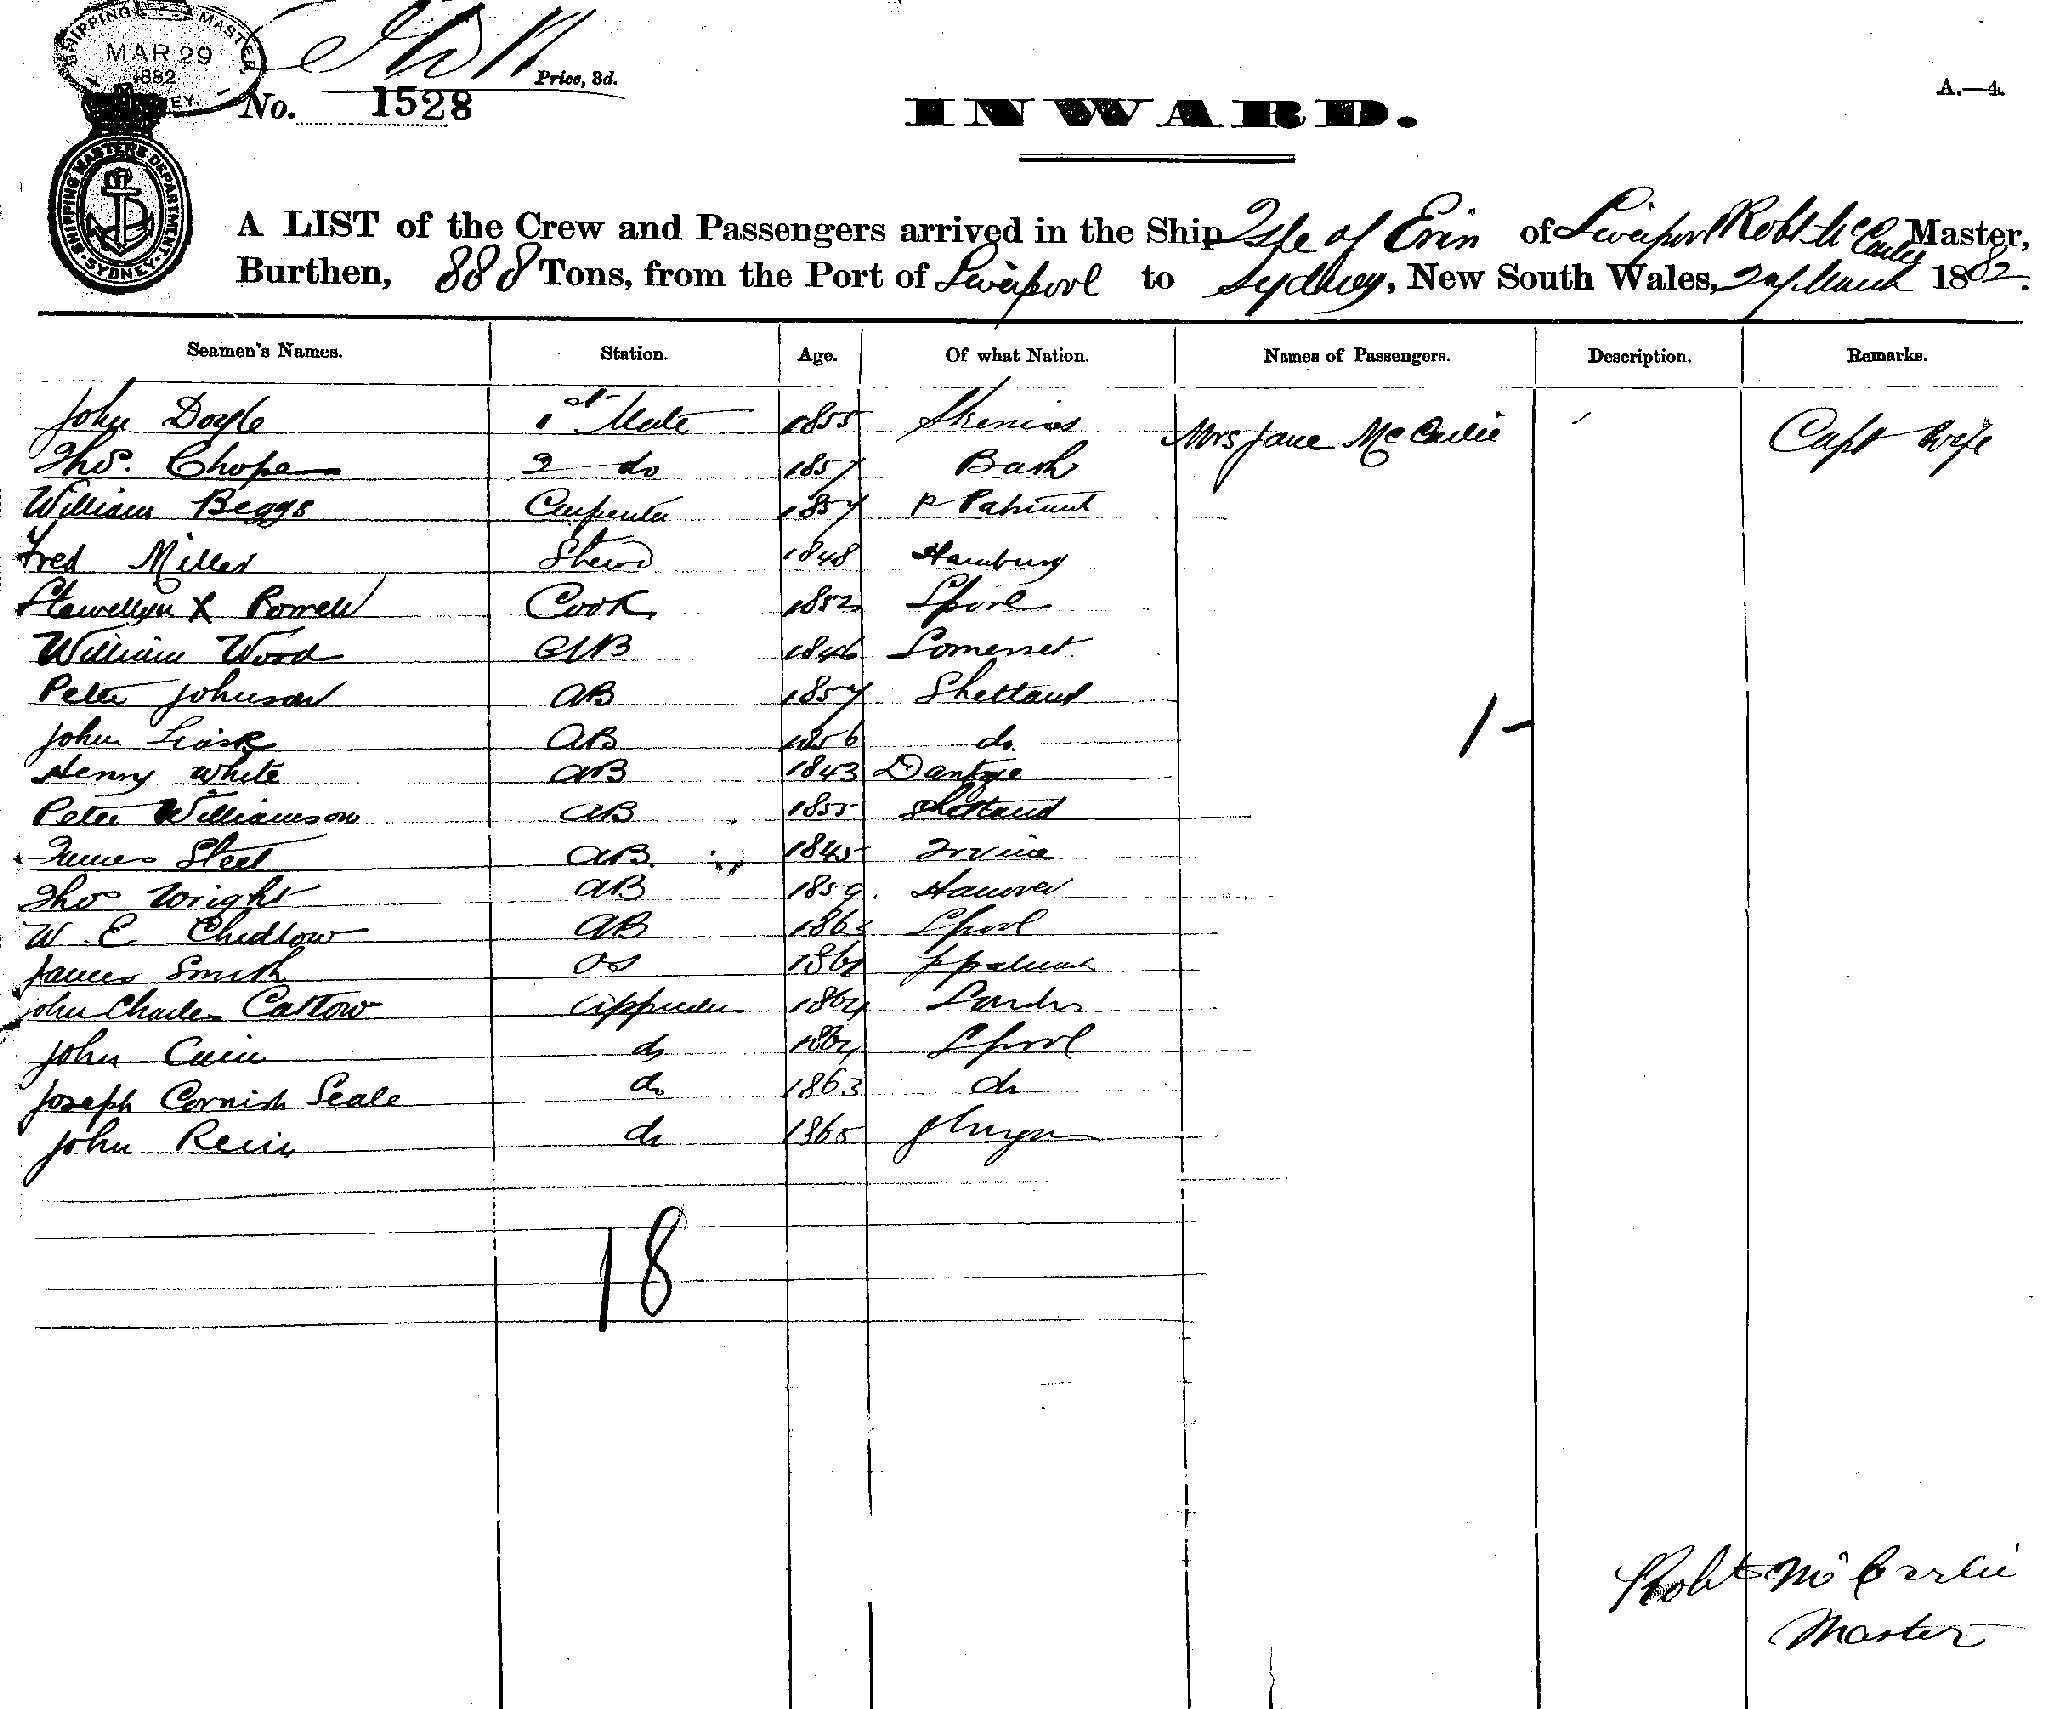 SHIPPING MASTER
MAR 29
1882
SYDNEY
Price, 3d.
No. 1528
INWARD.
A.—4.
SHIPPING MASTERS DEPARTMENT
SYDNEY
A LIST of the Crew and Passengers arrived in the Ship Isle of Erin of Liverpool Robt McCarlie Master,
Burthen, 888 Tons, from the Port of Liverpool to Sydney, New South Wales, March 1882.
Seamen's Names. Station. Age. Of what Nation. Names of Passengers. Description. Remarks.
John Doyle 1st Mate 1855 Mrs Jane McCarlie Capt wife
Thos. Chope 2 do 1857
William Beggs Carpenter 1857
Fred Miller Stewd 1848 Hamburg
Llewellyn X Powell Cook 1852 Lpool
William Wood AB 1846 Somerset
Peter Johnson AB 1857 Shetland
John Leask AB 1856 do
Henry White AB 1843
Peter Williamson AB 1855 Shetland
James Steel AB 1845 Irvine
Thos Wright AB 1859 Hanover
W. E Chidlow AB Lpool
James Smith OS
John Charles Castow 1864 London
John Cain do 1864 Lpool
Joseph Cornish Seale do 1863 do
John do 1865
1-
18
Robt McCarlie
Master